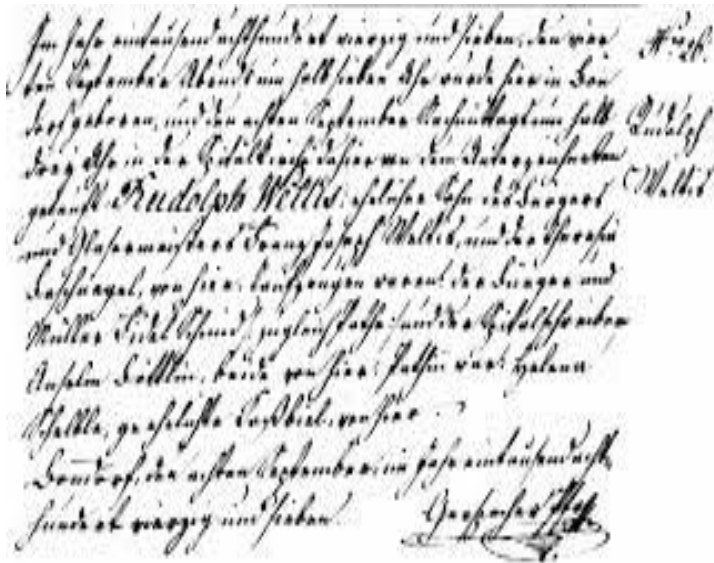 Im Jahr eintausend achthundert vierzig und sieben, den vier
ten September Abends um halb sieben Uhr wurde hier in Bon
dorf geboren, und den achten September Nachmittags um halb
drey Uhr in der Spitalkirche dahier von dem Unterzeichneten
getauft Rudolph Welkis, ehelicher Sohn des Bürgers
und Glasermeisters Franz Joseph Welkis, und der Theresia
von hier. Taufzeugen waren: der Bürger und
Müller Fidel Schmid, zugleich Pathe, und der Spitalschreiber
Anselm beide von hier. Pathin war: Helena
Schelble, geehelichte von hier.
Bondorf, den achten September, im Jahr eintausend acht
hundert vierzig und sieben.
Rudolph
Welkis